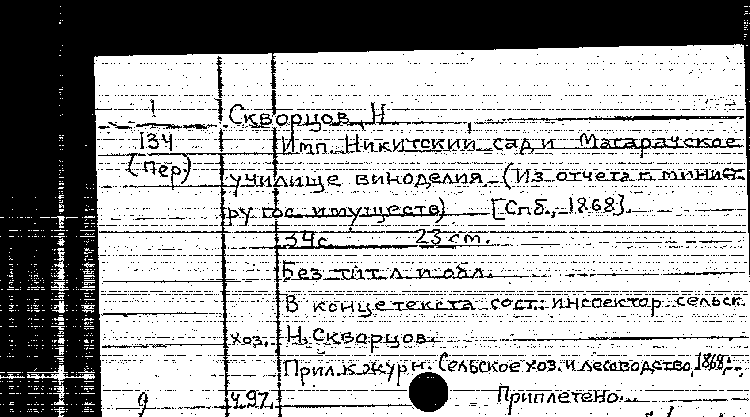 1
134
(Пер.)
Скворцов, Н
Имп. Никитский сад и Магарачское
училище виноделия. (Из отчета г. минист-
ру гос. имуществ) [Спб., 1868].
34с. 23 см.
Без тит. л. и обл.
В конце текста сост.: инспектор сельск.
хоз. Н. Скворцов.
Прил. к журн. Сельское хоз. и лесоводство, 1868,
Приплетено...